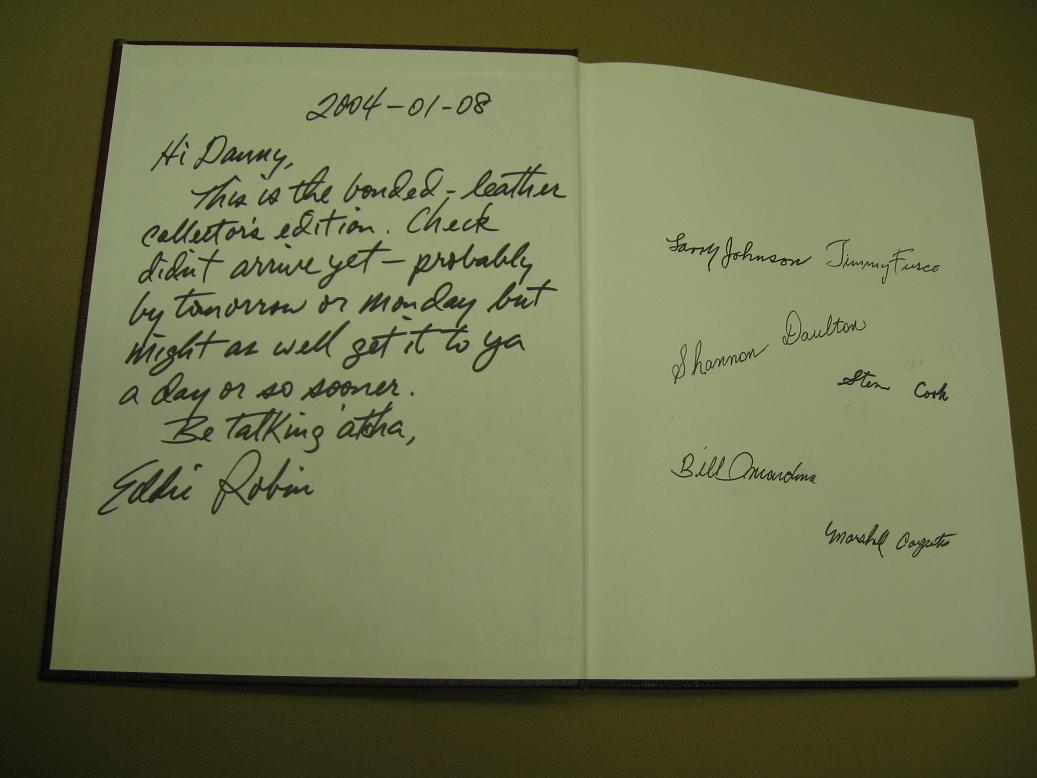 2004-01-08
Hi Danny,
This is the bonded-leather
collector's edition. Check
didn't arrive yet - probably
by tomorrow or Monday but
might as well get it to ya
a day or so sooner.
Be talking atcha,
Eddie Robin
Larry Johnson Jimmy Fusco
Shannon Daulton
Cook
Bill
Marshall